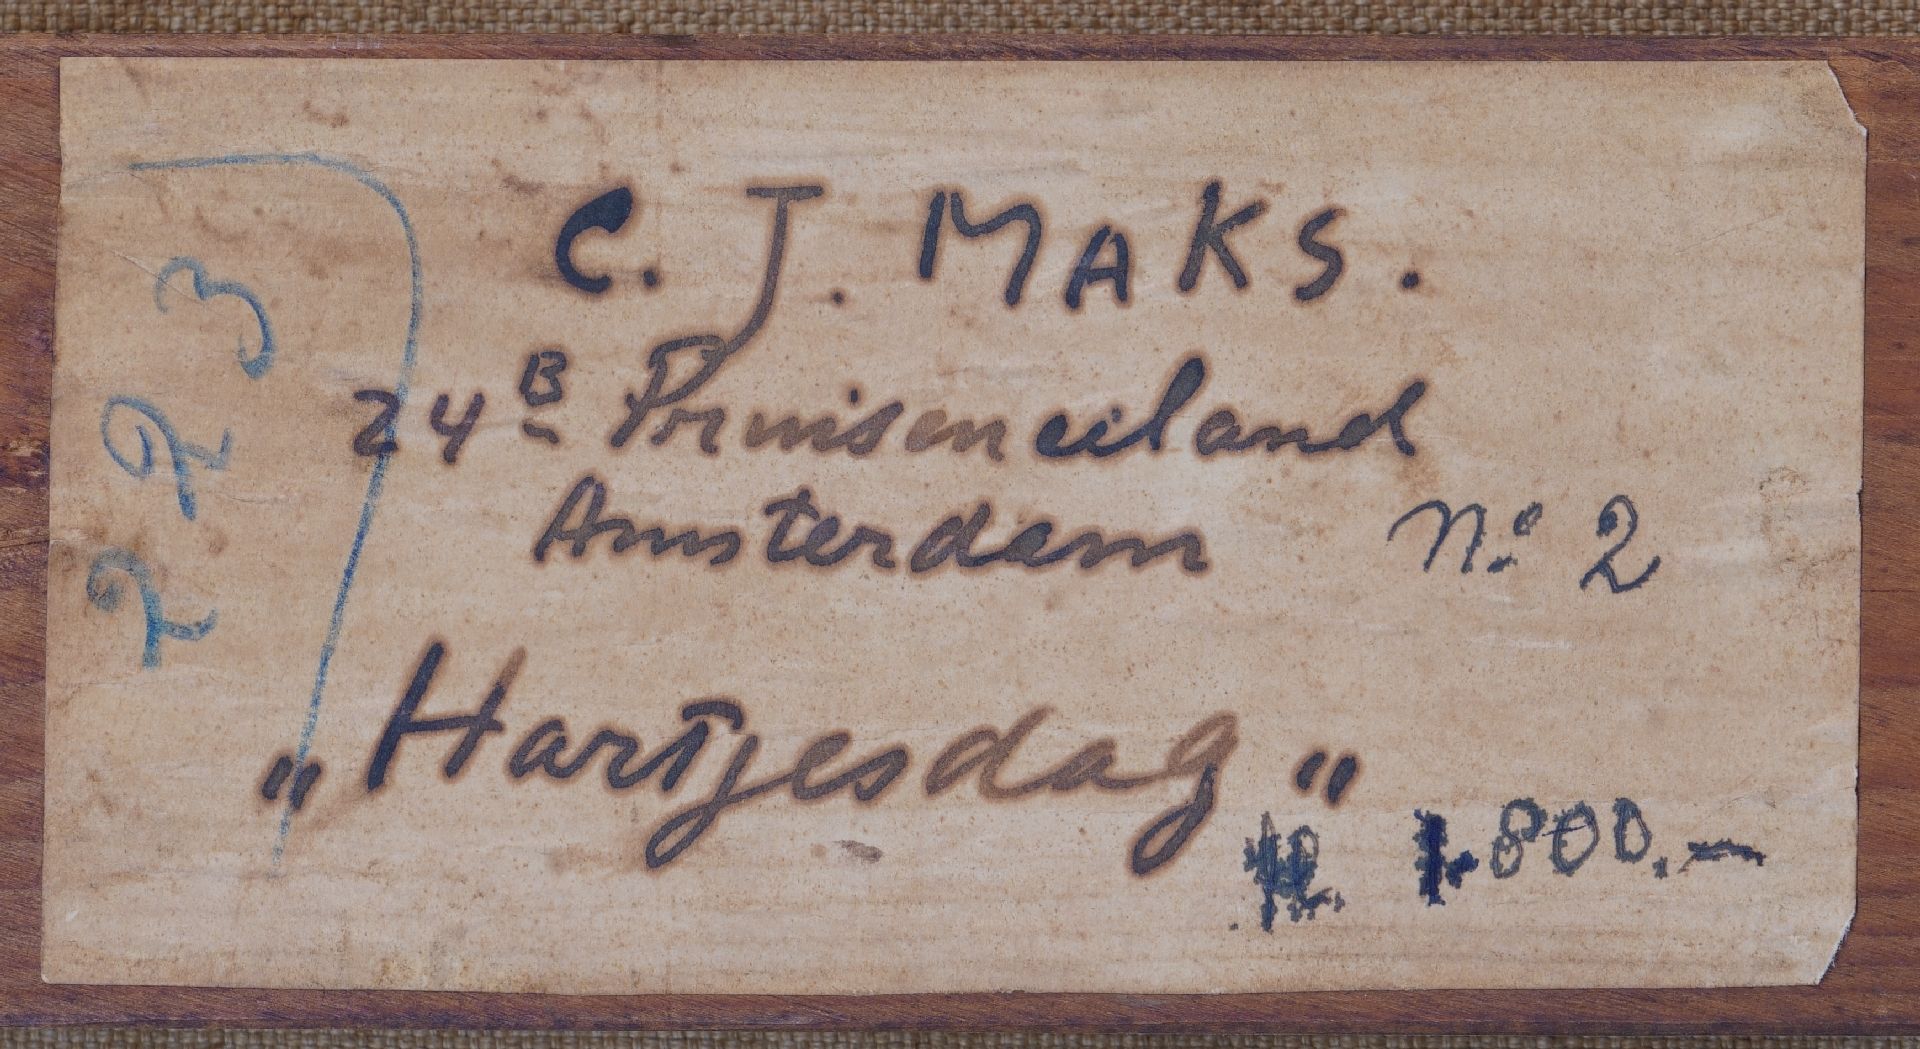 C. J. MAKS.
24B Pruiseneiland
Amsterdam
No 2
"Hartjesdag"
1.800.—
223